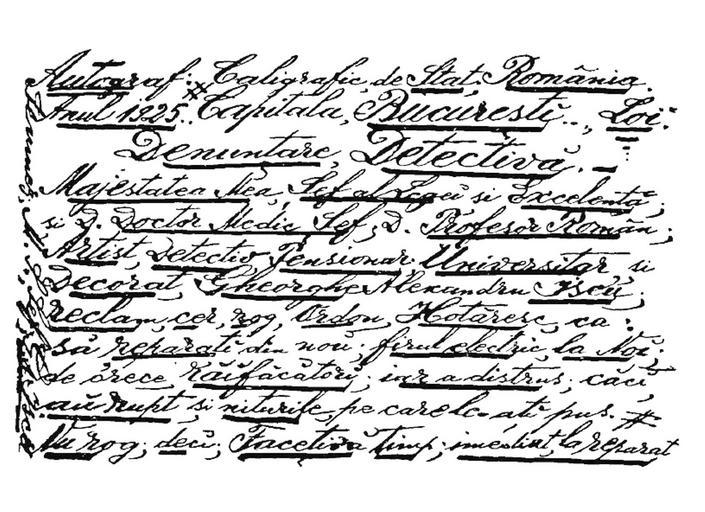 Autograf: Caligrafic, de Stat. România.
Anul 1925. Capitala, Bucuresti.., Loi:
Denuntare, Detectivă. —
Majestatea Mea, Sef al Legei si Excelentă,
si D. Doctor Medic Sef, D. Profesor Român,
Artist, Detectiv Pensionar Universitar, si
Decorat, Gheorghe Alexandru Iscu,
reclam, cer, rog, Ordon, Hotaresc, ca:
să reparati din nou, firul electric, la Noi;
de òrece Răifăcătorii, iar a distrus; căci
au rupt si niturile, pe care le-ati pus. #
Vu rog, deci, Faceti vă timp, imediat, la reparat